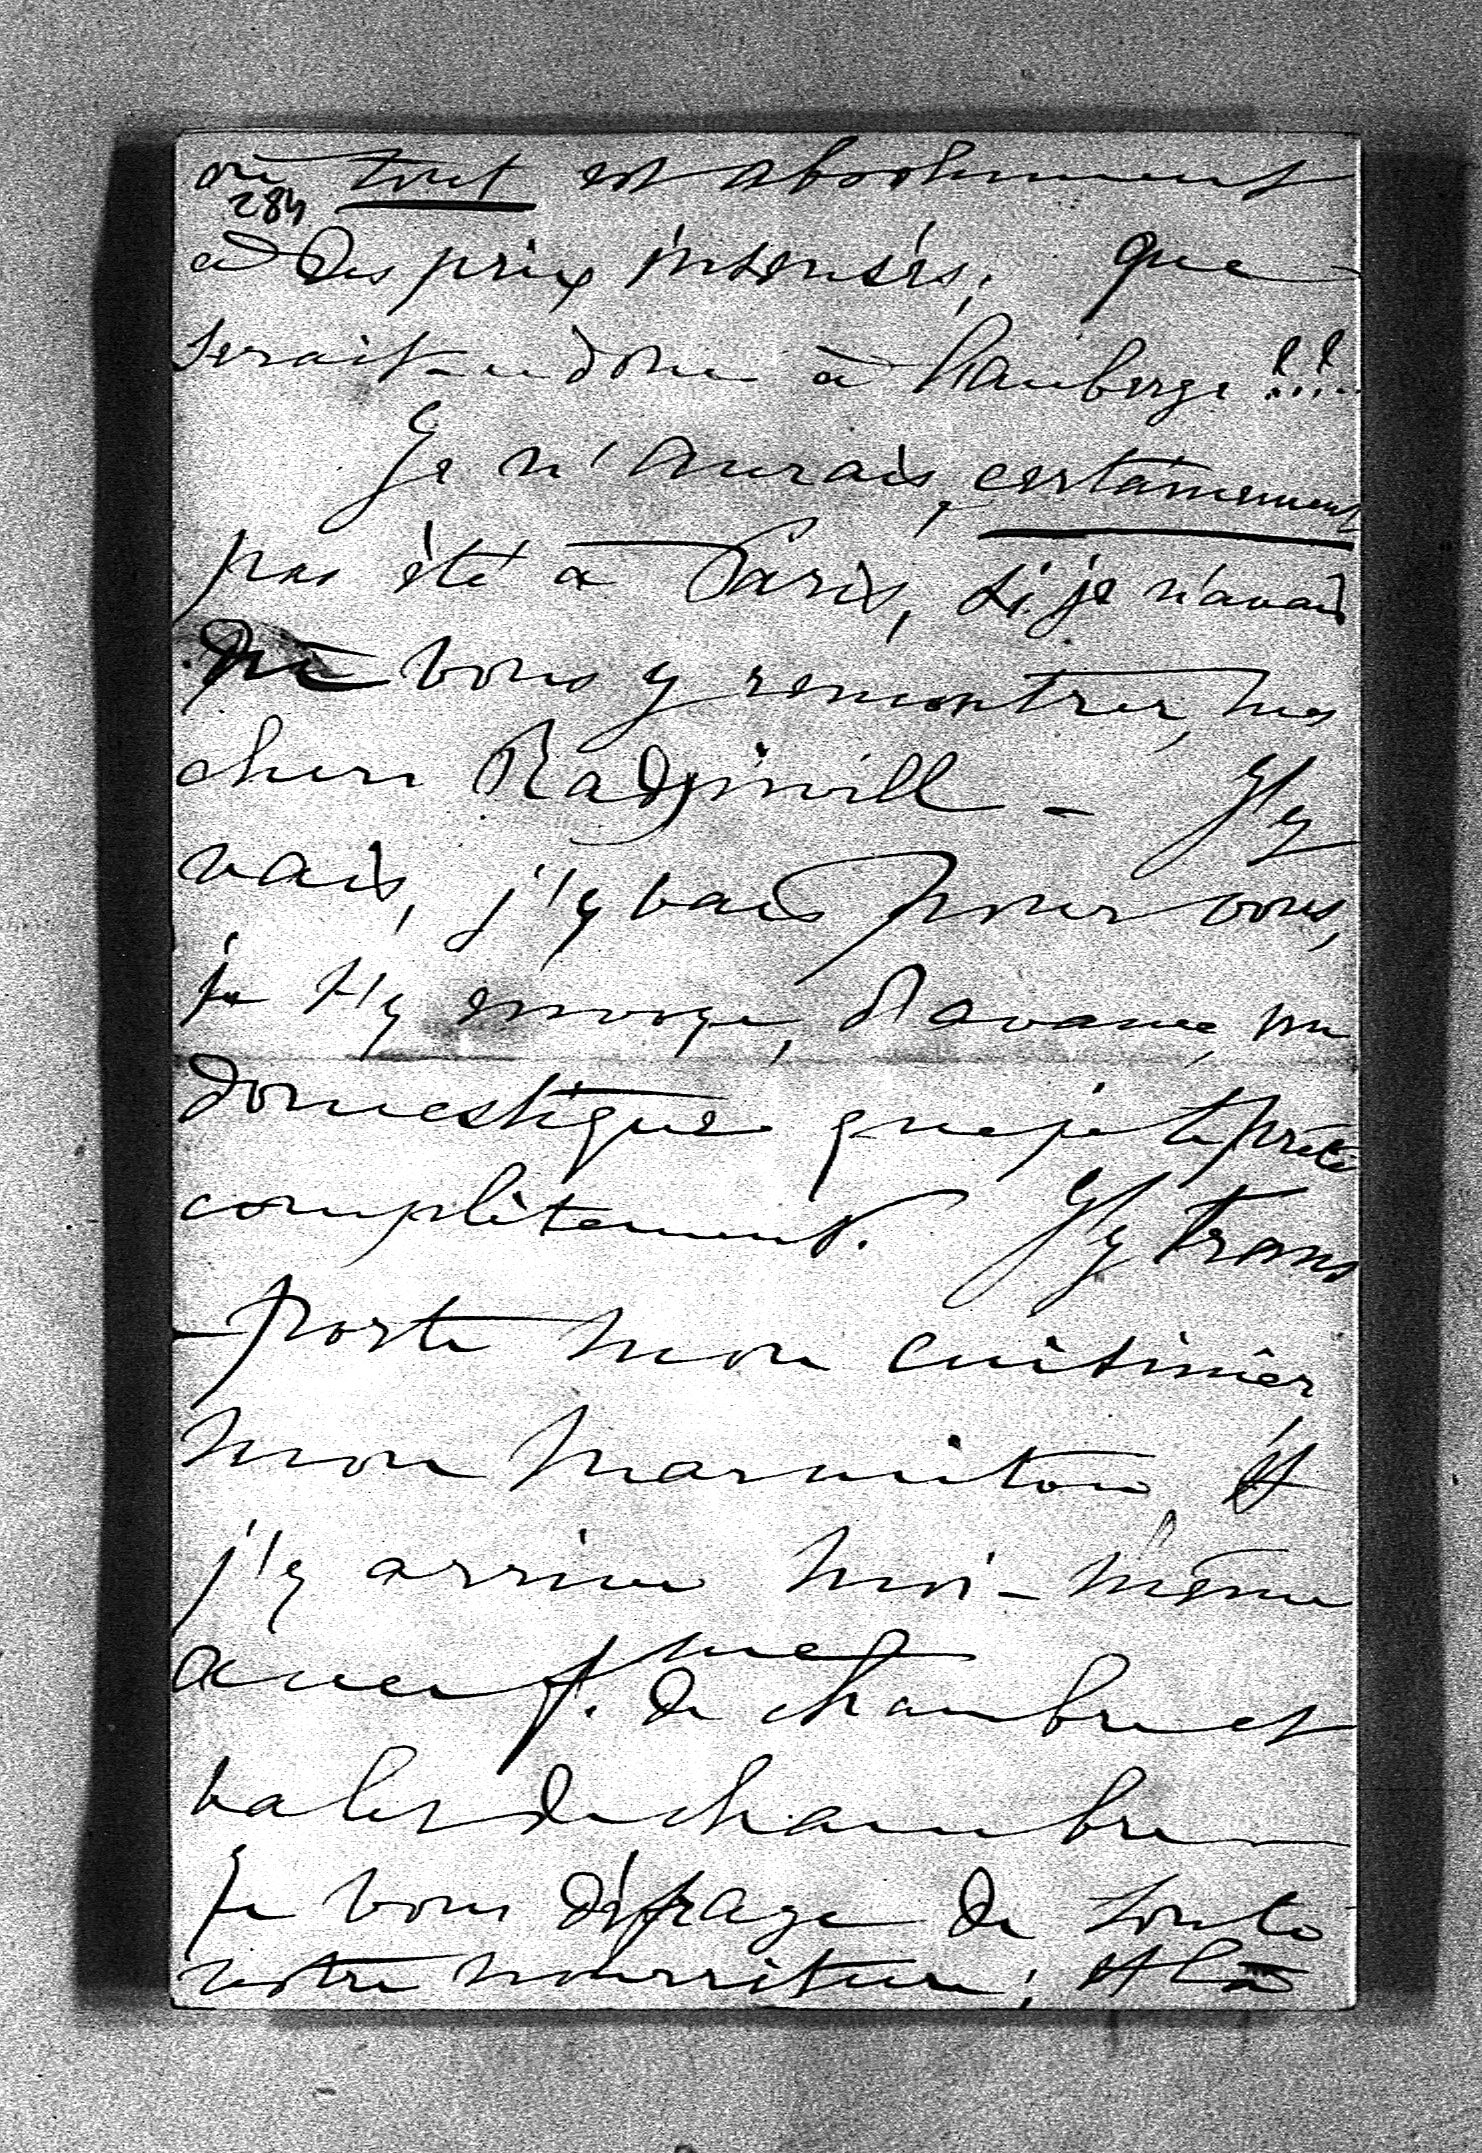 où tout est absolument
284
à des prix insensés; que
serait-ce donc à l'auberge!!!
Je n'aurais, certainement
pas été à Paris, si je n'avais
dû vous y rencontrer, mes
chers Radziwill - J'y
vais, j'y vais pour vous,
je t'y envoye, d'avance, un
domestique que je te prête
complètement. J'y trans
-porte mon cuisinier
mon marmiton, et
j'y arrive moi-même
avec f.me de chambre et
valet de chambre
Je vous défraye de toute
votre nourriture; et là